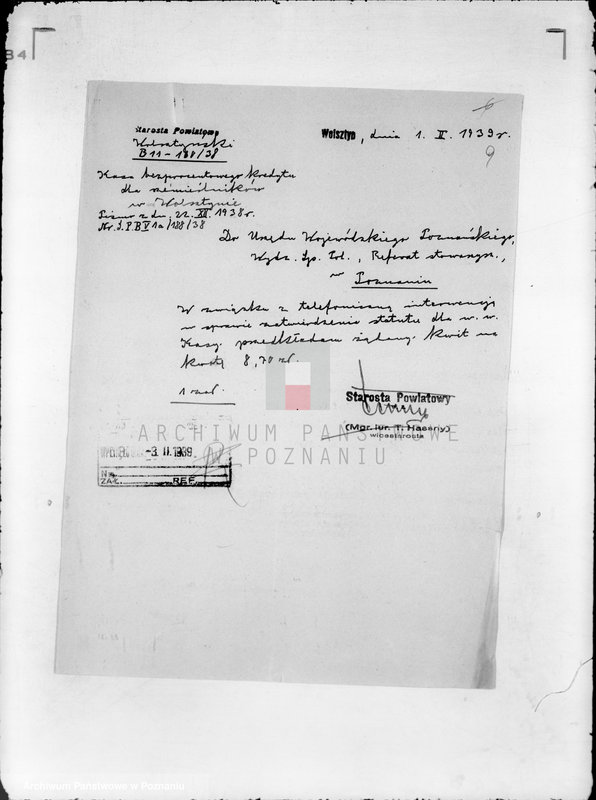 84
6
Starosta Powiatowy
Wolsztyński
B 11 – 188/38
Wolsztyn, dnia 1. II. 1939 r.
9
Kasa bezprocentowego kredytu
dla rzemieślników
w Wolsztynie
Pismo z dn. 22. XII. 1938 r.
Nr. S.P.B V 1a/188/38
Do Urzędu Wojewódzkiego Poznańskiego,
Wydz. Sp. Pol., Referat stowarzysz.,
w Poznaniu
W związku z telefoniczną interwencją
w sprawie zatwierdzenia statutu dla w. w.
Kasy przedkładam żądany kwit na
kwotę 8,70 zł.
1 zał.
Starosta Powiatowy
(Mgr. iur. T. Hassny)
wicestarosta
ARCHIWUM PAŃSTWOWE
W POZNANIU
-3. II. 1939.
Nr.
ZAŁ. REF.
Archiwum Państwowe w Poznaniu